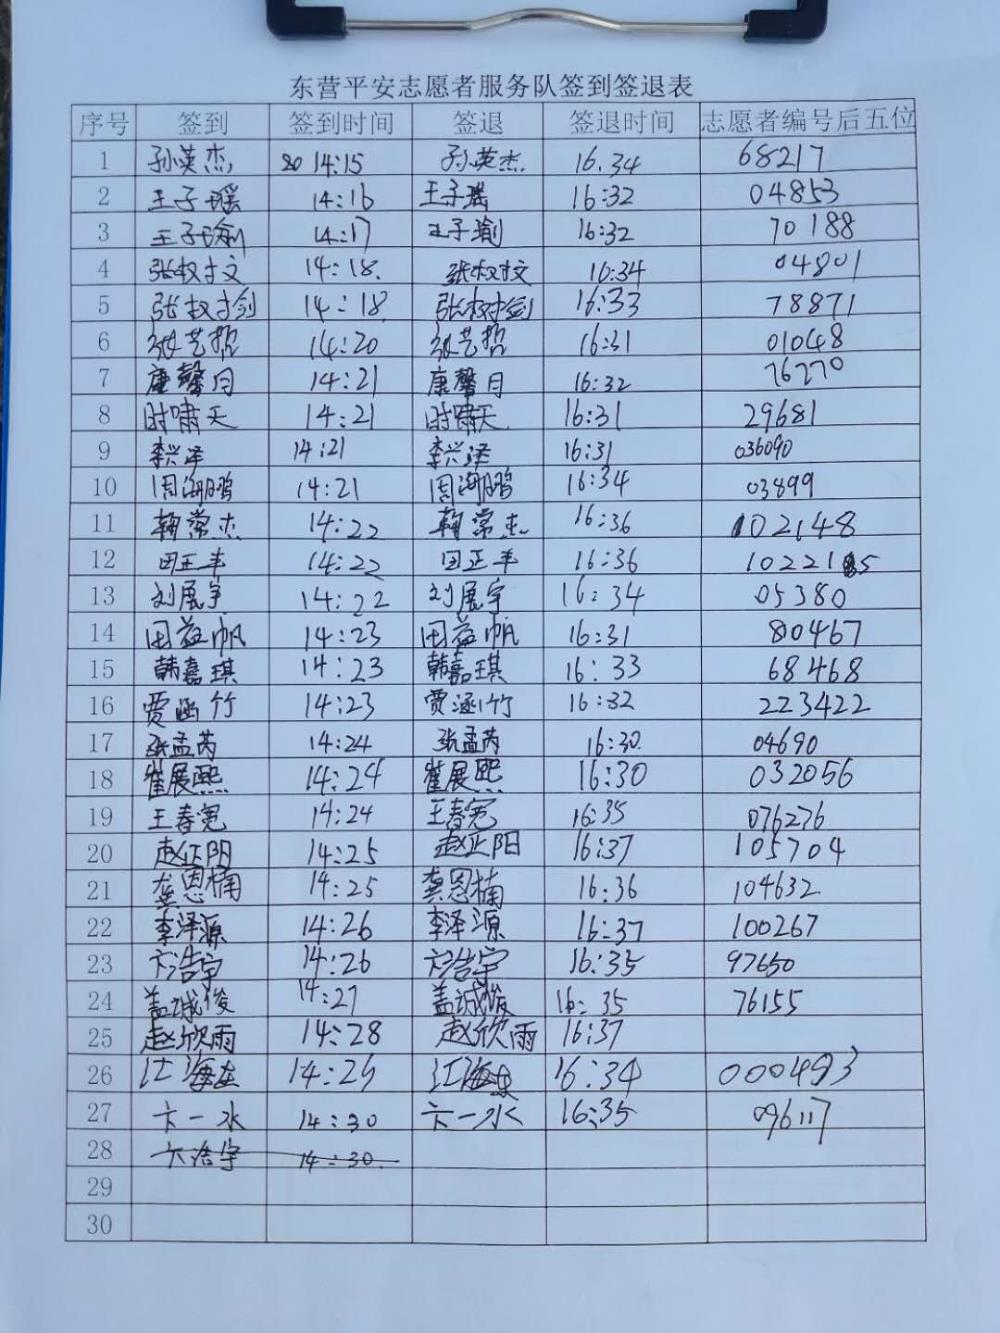 东营平安志愿者服务队签到签退表
序号 签到 签到时间 签退 签退时间 志愿者编号后五位
1 孙英杰 14:15 孙英杰 16.34 68217
2 王子瑶 14:16 王子瑶 16:32 04853
3 王子瑜 14:17 王子瑜 16:32 70188
4 张权文 14:18. 张权文 16:34 04801
5 张权剑 14:18 张权剑 16:33 78871
6 张艺哲 14:20 张艺哲 16:31 01048
7 康馨月 14:21 康馨月 16:32 76270
8 时啸天 14:21 时啸天 16:31 29681
9 李兴泽 14:21 李兴泽 16:31 036090
10 周海鹏 14:21 周海鹏 16:34 03899
11 鞠常杰 14:22 鞠常杰 16:36 102148
12 田正丰 14:22 田正丰 16:36 1022185
13 刘展宇 14:22 刘展宇 16:34 05380
14 田益帆 14:23 田益帆 16:31 80467
15 韩嘉琪 14:23 韩嘉琪 16:33 68468
16 贾涵竹 14:23 贾涵竹 16:32 223422
17 张孟芮 14:24 张孟芮 16:30 04690
18 崔展熙 14:24 崔展熙 16:30 032056
19 王春冕 14:24 王春冕 16:35 076276
20 赵正阳 14:25 赵正阳 16:37 105704
21 龚恩楠 14:25 龚恩楠 16:36 104632
22 李泽源 14:26 李泽源 16:37 100267
23 卞浩宇 14:26 卞浩宇 16:35 97650
24 盖诚俊 14:27 盖诚俊 16:35 76155
25 赵欣雨 14:28 赵欣雨 16:37
26 江海东 14:29 江海东 16:34 000493
27 卞一水 14:30 卞一水 16:35 096117
28 卞浩宇 14:30
29
30